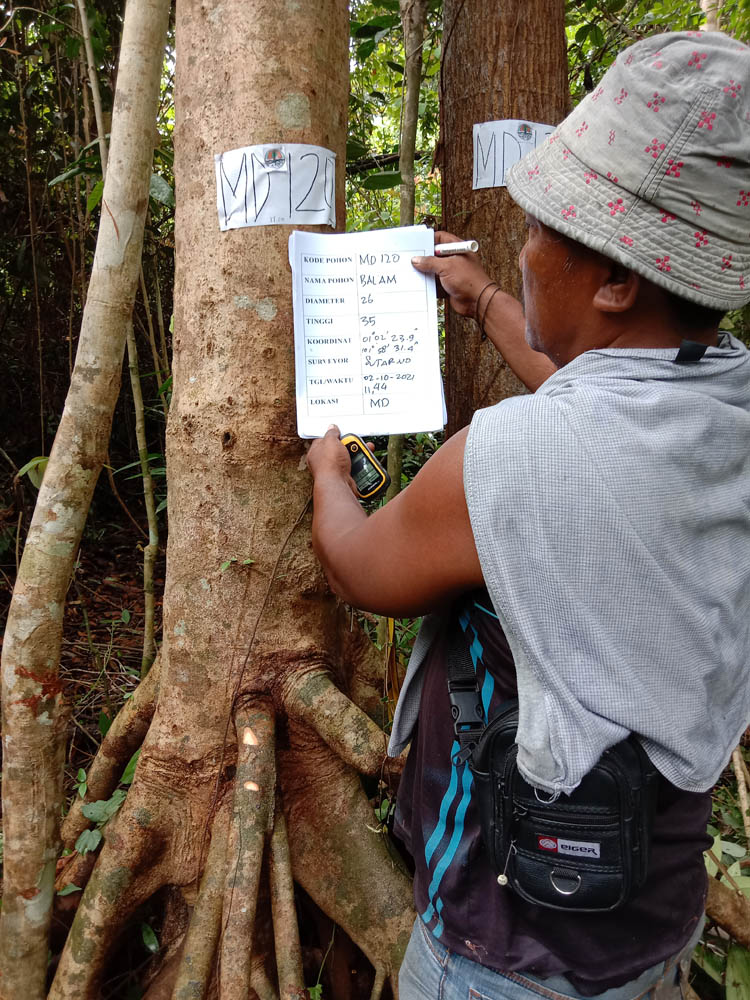 MD 120
MD
KODE POHON MD 120
NAMA POHON BALAM
DIAMETER 26
TINGGI 35
KOORDINAT 01° 02' 23.9"
101° 58' 31.4"
SURVEYOR SUTARNO
TGL/WAKTU 02-10-2021
11,44
LOKASI MD
EIGER